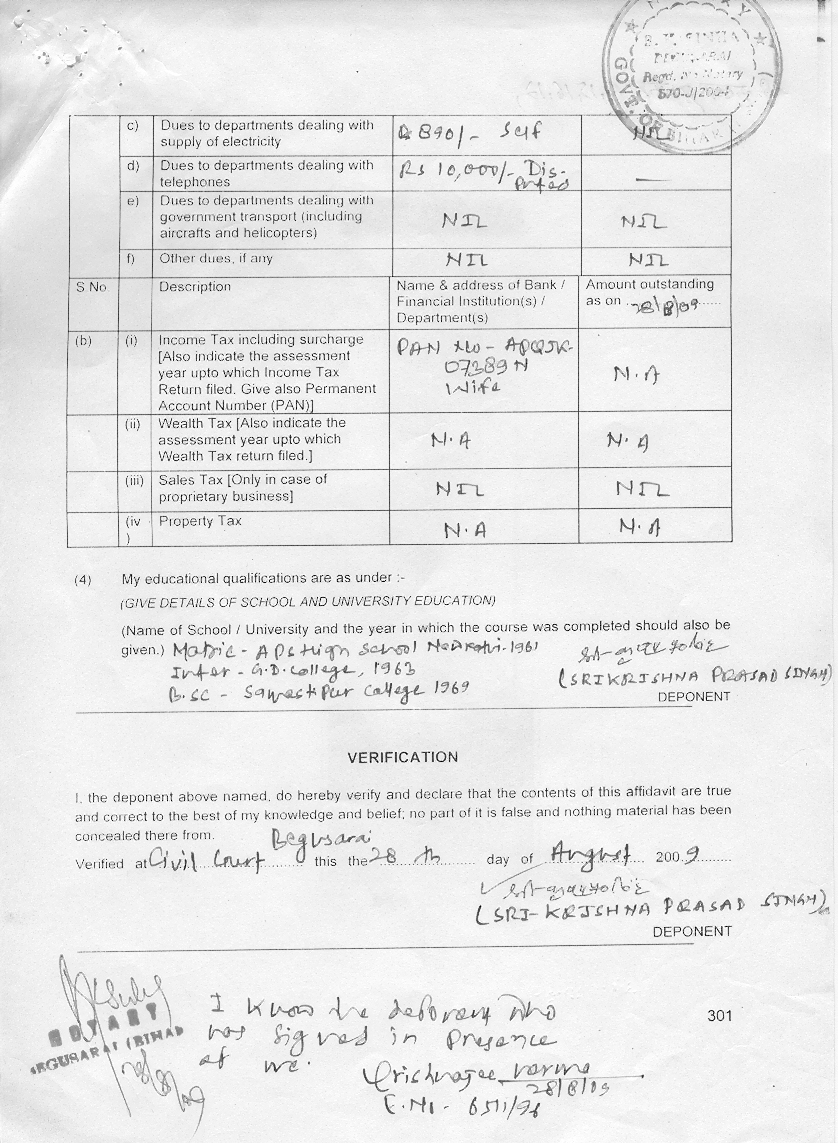 GOVT. OF BIHAR
Regd. No Notary
c) Dues to departments dealing with supply of electricity 890/- Self NIL
d) Dues to departments dealing with telephones Rs 10,000/- Dis-puted —
e) Dues to departments dealing with government transport (including aircrafts and helicopters) NIL NIL
f) Other dues, if any NIL NIL
S No Description Name & address of Bank / Financial Institution(s) / Department(s) Amount outstanding as on 28/8/09
(b) (i) Income Tax including surcharge [Also indicate the assessment year upto which Income Tax Return filed. Give also Permanent Account Number (PAN)] PAN No - 07389N Wife N.A
(ii) Wealth Tax [Also indicate the assessment year upto which Wealth Tax return filed.] N.A N.A
(iii) Sales Tax [Only in case of proprietary business] NIL NIL
(iv) Property Tax N.A N.A
(4) My educational qualifications are as under :-
(GIVE DETAILS OF SCHOOL AND UNIVERSITY EDUCATION)
(Name of School / University and the year in which the course was completed should also be
given.) Matric - APS High School 1961
Inter - G.D. College, 1963
B.SC - College 1969
(SRIKRISHNA PRASAD SINGH)
DEPONENT
VERIFICATION
I, the deponent above named, do hereby verify and declare that the contents of this affidavit are true
and correct to the best of my knowledge and belief; no part of it is false and nothing material has been
concealed there from.
Begusarai
Verified at Civil Court this the 28 th day of August 2009
(SRI-KRISHNA PRASAD SINGH)
DEPONENT
301
I know the deponent who
has signed in presence
of me.
28/8/09
E.No - 6511/96
NOTARY
BEGUSARAI (BIHAR)
28/8/09